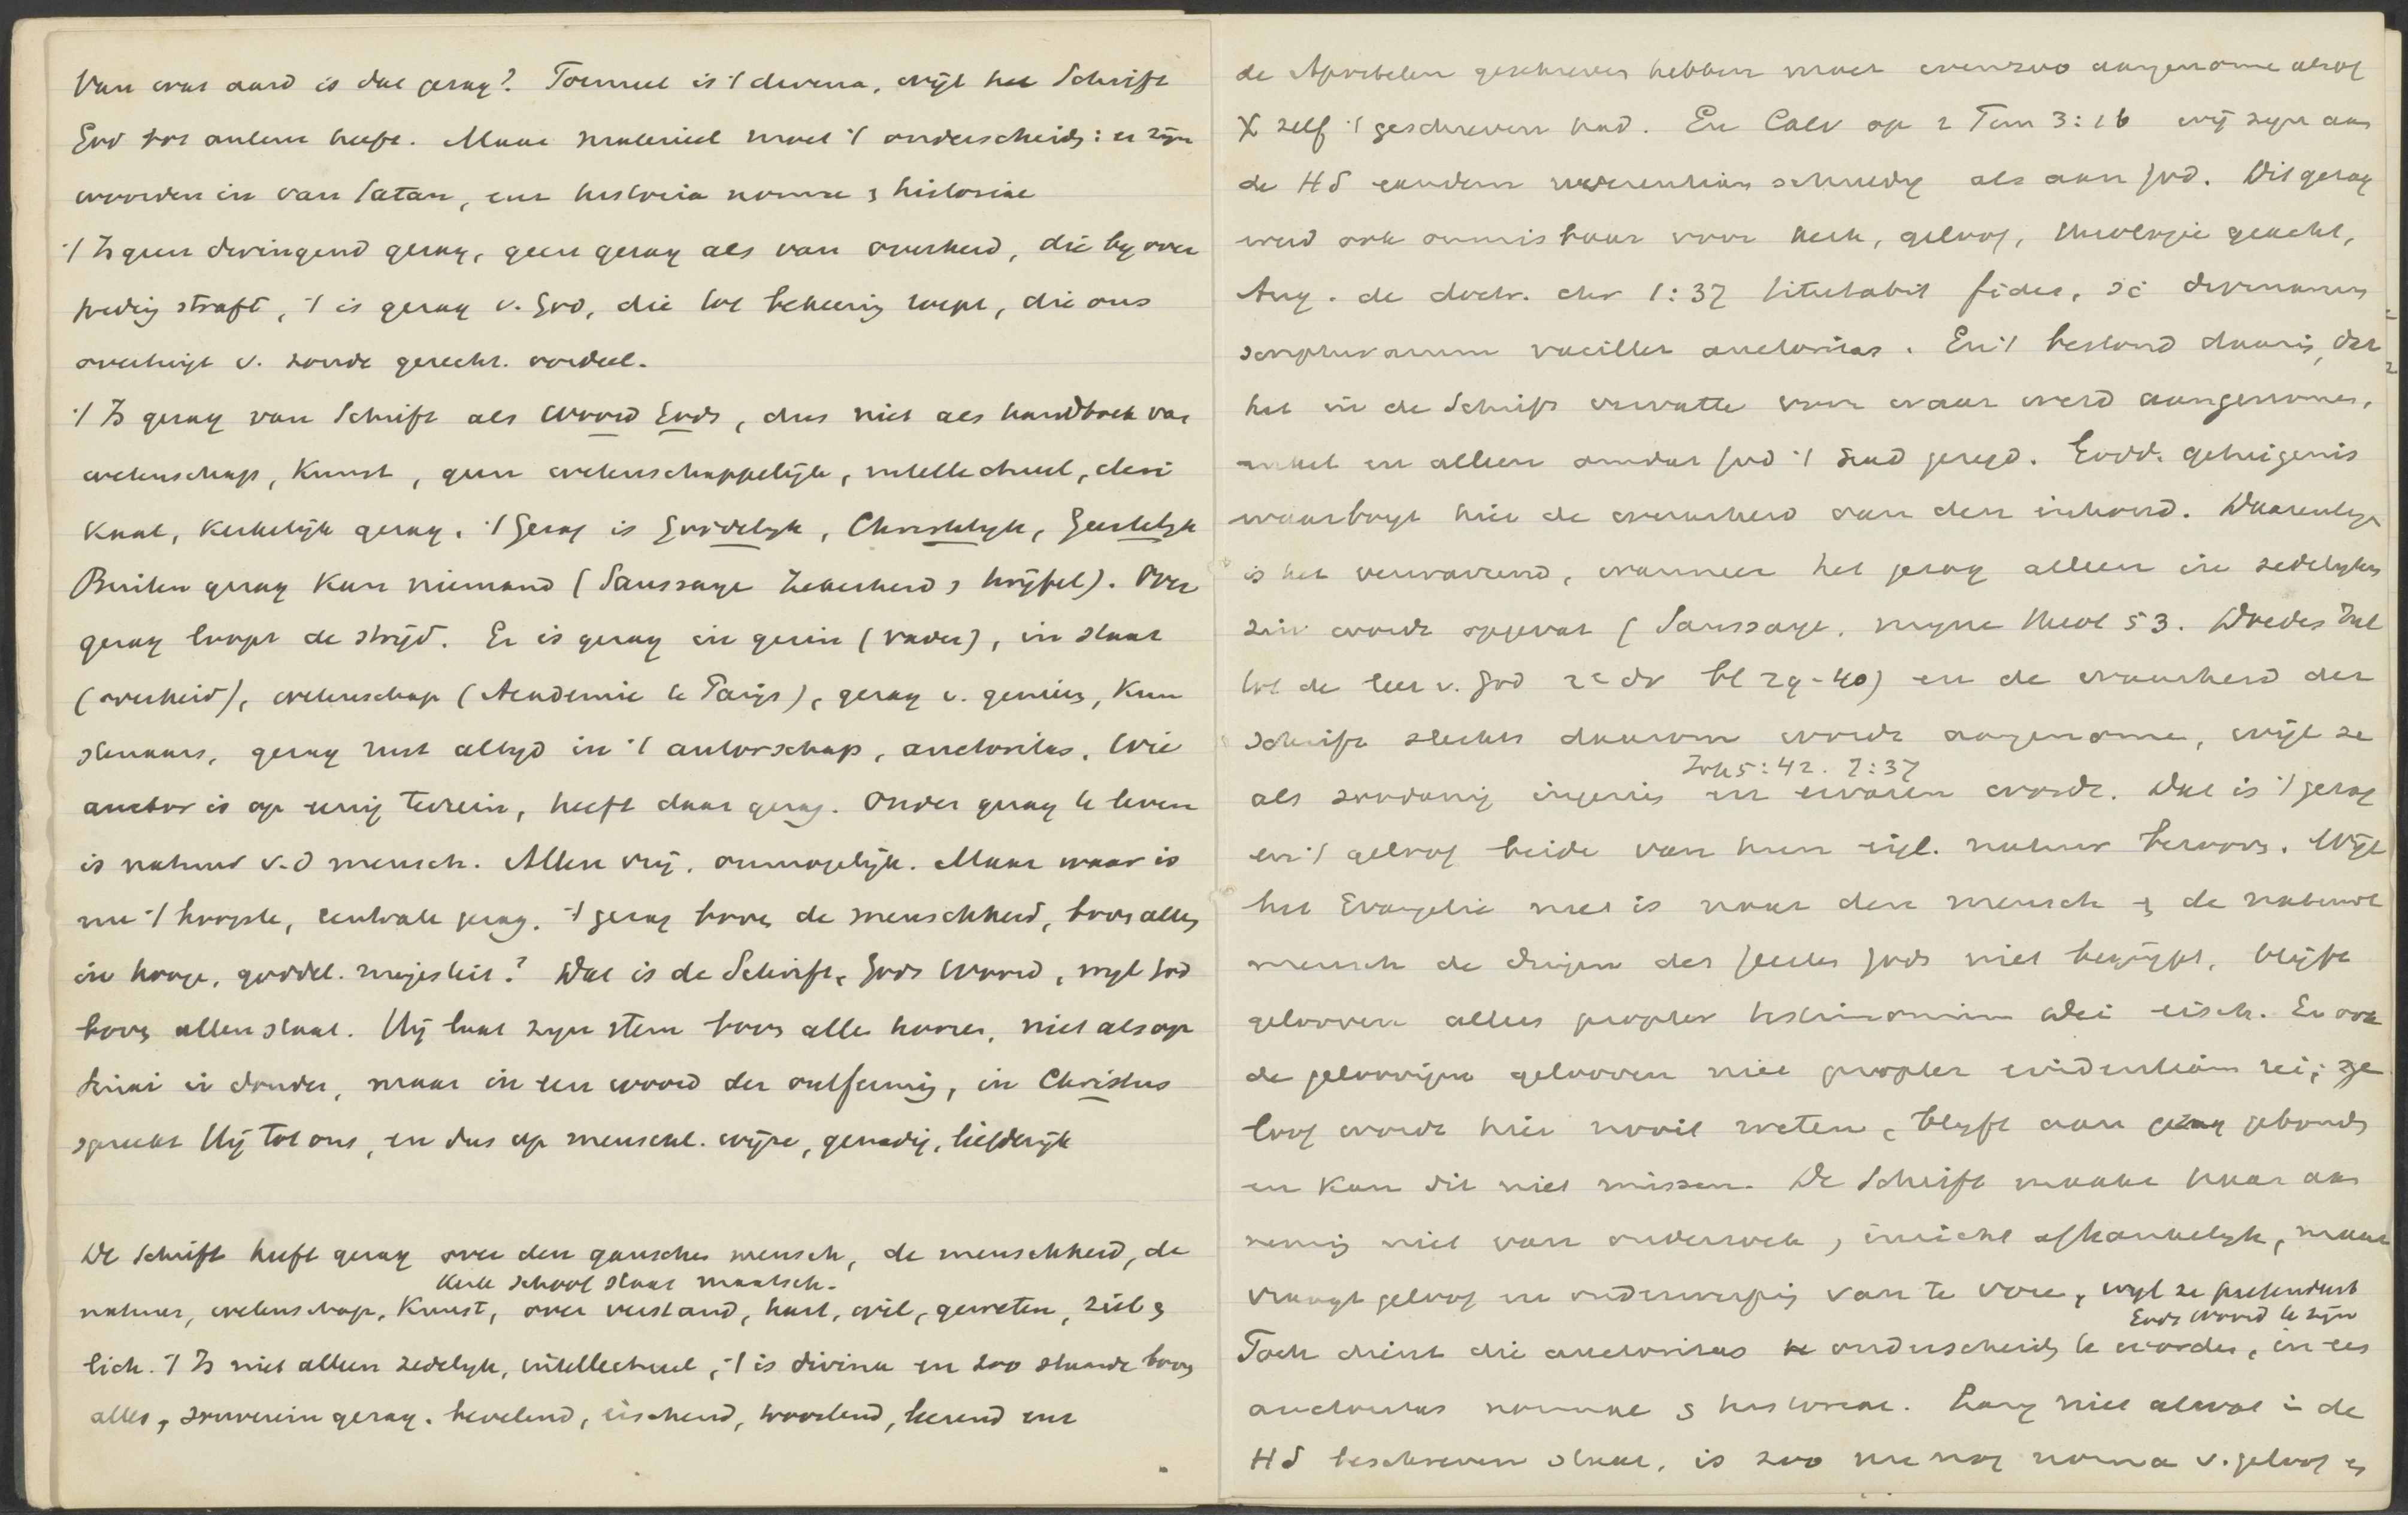 Van wat aard is dat gezag? Formeel is 't divina, wijl heel Schrift
God tot auteur heeft. Maar materieel moet 't onderscheid: er zijn
woorden in van Satan, enz historia norma & historiae
't Is geen dwingend gezag, geen gezag als van overheid, die bij over
treding straft, 't is gezag v. God, die tot bekeering roept, die ons
overtuigt v. zonde gerecht. oordeel.
't Is gezag van Schrift als Woord Gods, dus niet als handboek van
wetenschap, Kunst, geen wetenschappelijk, intellectueel, cleri
kaal, kerkelijk gezag. 't Gezag is Goddelijk, Christelijk, Geestelijk
Buiten gezag kan niemand (Saussaye Zekerheid & twijfel). Over
gezag loopt de strijd. Er is gezag in gezin (vader), in staat
(overheid), wetenschap (Academie te Parijs), gezag v. genieën, Kun
stenaars, gezag rust altijd in 't auteurschap, auctoritas. Wie
auctor is op eenig terrein, heeft daar gezag. Onder gezag te leven
is natuur v.d mensch. Allen vrij. onmogelijk. Maar waar is
nu 't hoogste, centrale gezag. 't gezag boven de menschheid, boven alles
in hooge, goddel. majesteit? Dat is de Schrift, Gods Woord, wijl God
boven allen staat. Hij laat zijn stem boven alle hooren, niet als op
Sinai in donder, maar in een woord der ontferming, in Christus
spreekt Hij tot ons, en dus op menschel. wijze, genadig, liefderijk
De Schrift heeft gezag over den ganschen mensch, de menschheid, de
Kerk school staat maatsch.
natuur, wetenschap, Kunst, over verstand, hart, wil, geweten, ziel &
lich. 't Is niet alleen zedelijk, intellectueel, 't is divina en zoo staande boven
alles, souverein gezag. bevelend, eischend, troostend, leerend enz
de Apostelen geschreven hebben moet evenzoo aangenomen alsof
X zelf 't geschreven had. En Calv op 2 Tim 3:16 wij zijn aan
de HS eandem reverentiam schuldig als aan God. Dit gezag
werd ook onmisbaar voor kerk, geloof, theologie geacht,
Aug. de doctr. chr 1:37 titubabit fides, si divinarum
scripturarum vacillet auctoritas. En 't bestond daarin, dat
het in de Schrift vervatte voor waar werd aangenomen,
enkel en alleen omdat God 't had gezegd. Godd. getuigenis
waarborgt hier de waarheid van den inhoud. Daarentegen
is het verwarrend, wanneer het gezag alleen in zedelijken
zin wordt opgevat (Saussaye, mijne Theol 53. Doedes Inl
tot de leer v. God 2e dr bl 29-40) en de waarheid der
Schrift slechts daarom wordt aangenomen, wijl ze
Joh 5:42. 7:37
als zoodanig ingezien en ervaren wordt. Dat is 't gezag
en 't geloof beide van hun eigl. natuur berooven. Wijl
het Evangelie niet is naar den mensch & de natuurl
mensch de dingen des Geestes Gods niet begrijpt, blijft
gelooven alles propter testimonium Dei eisch. En ook
de geloovigen gelooven niet propter evidentiam rei; ge
loof wordt hier nooit weten, blijft aan gezag gebonden
en kan dit niet missen. De Schrift maakt haar aan
neming niet van onderzoek, inzicht afhankelijk, maar
vraagt geloof en onderwerping van te voren, wijl ze pretendeert
Gods Woord te zijn
Toch dient die auctoritas onderscheiden te worden, in een
auctoritas normae & historiae. Lang niet alwat in de
HS beschreven staat, is zoo nu nog norma v. geloof &